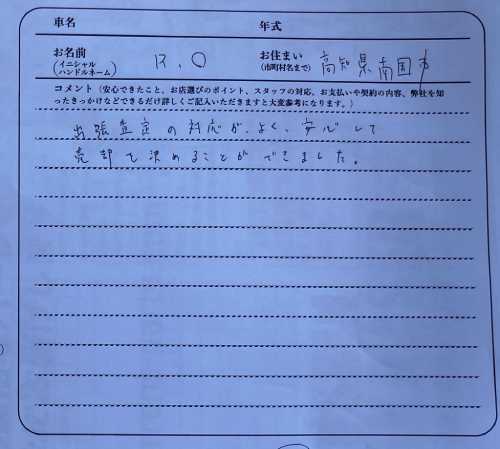 車名 年式
お名前 (イニシャル ハンドルネーム) R.O お住まい (市町村名まで) 高知県南国市
コメント（安心できたこと、お店選びのポイント、スタッフの対応、お支払いや契約の内容、弊社を知
ったきっかけなどできるだけ詳しくご記入いただきますと大変参考になります。）
出張査定の対応が、よく、安心して
売却を決めることができました。